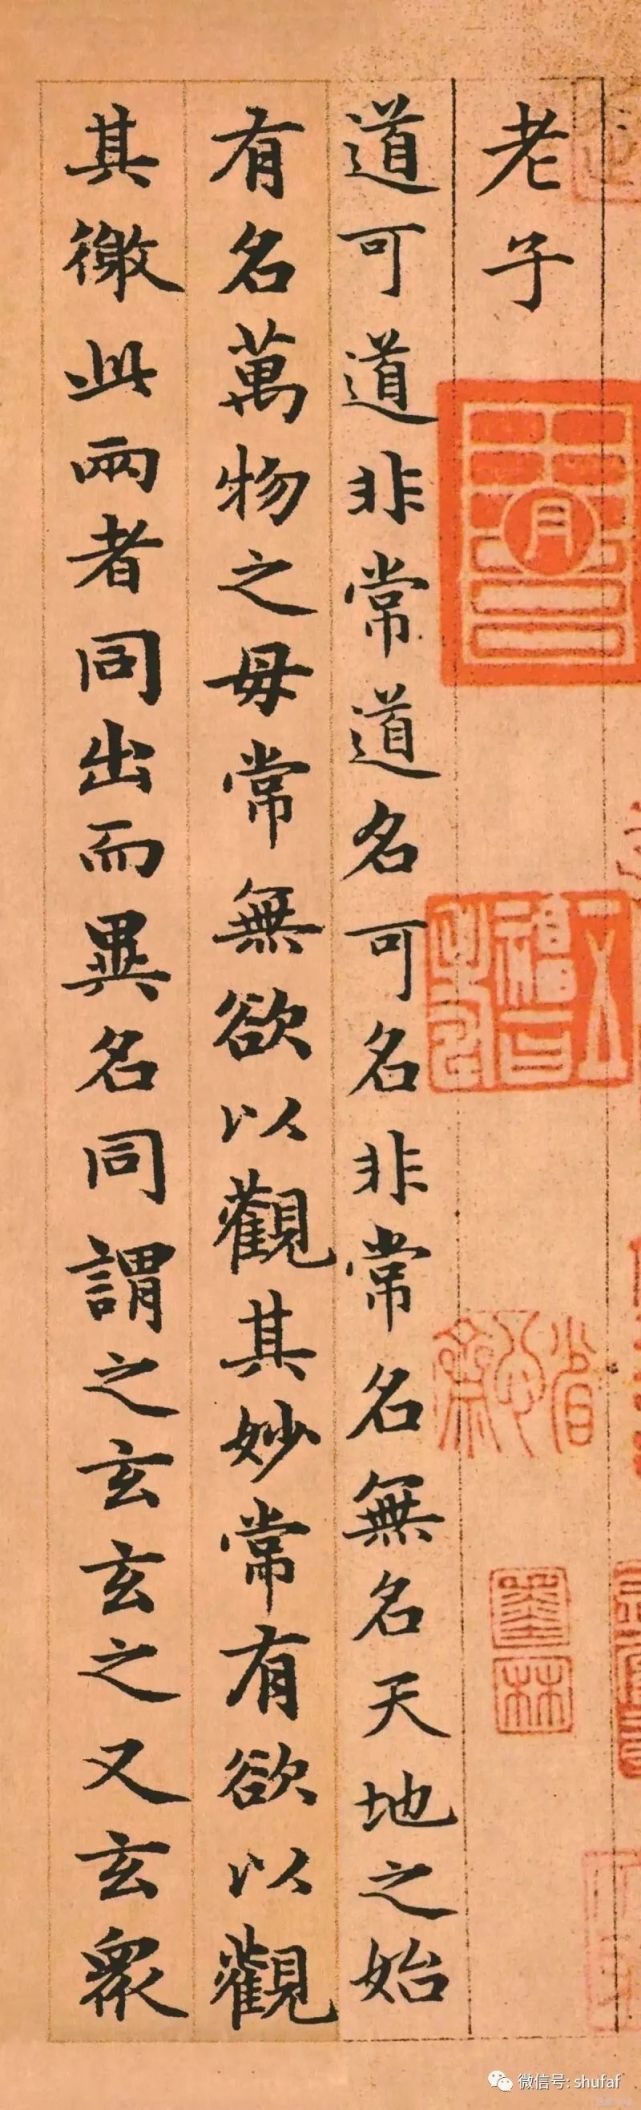 老子
道可道非常道名可名非常名無名天地之始
有名萬物之母常無欲以觀其妙常有欲以觀
其徼此兩者同出而異名同謂之玄玄之又玄眾
墨林
微信号: shufaf